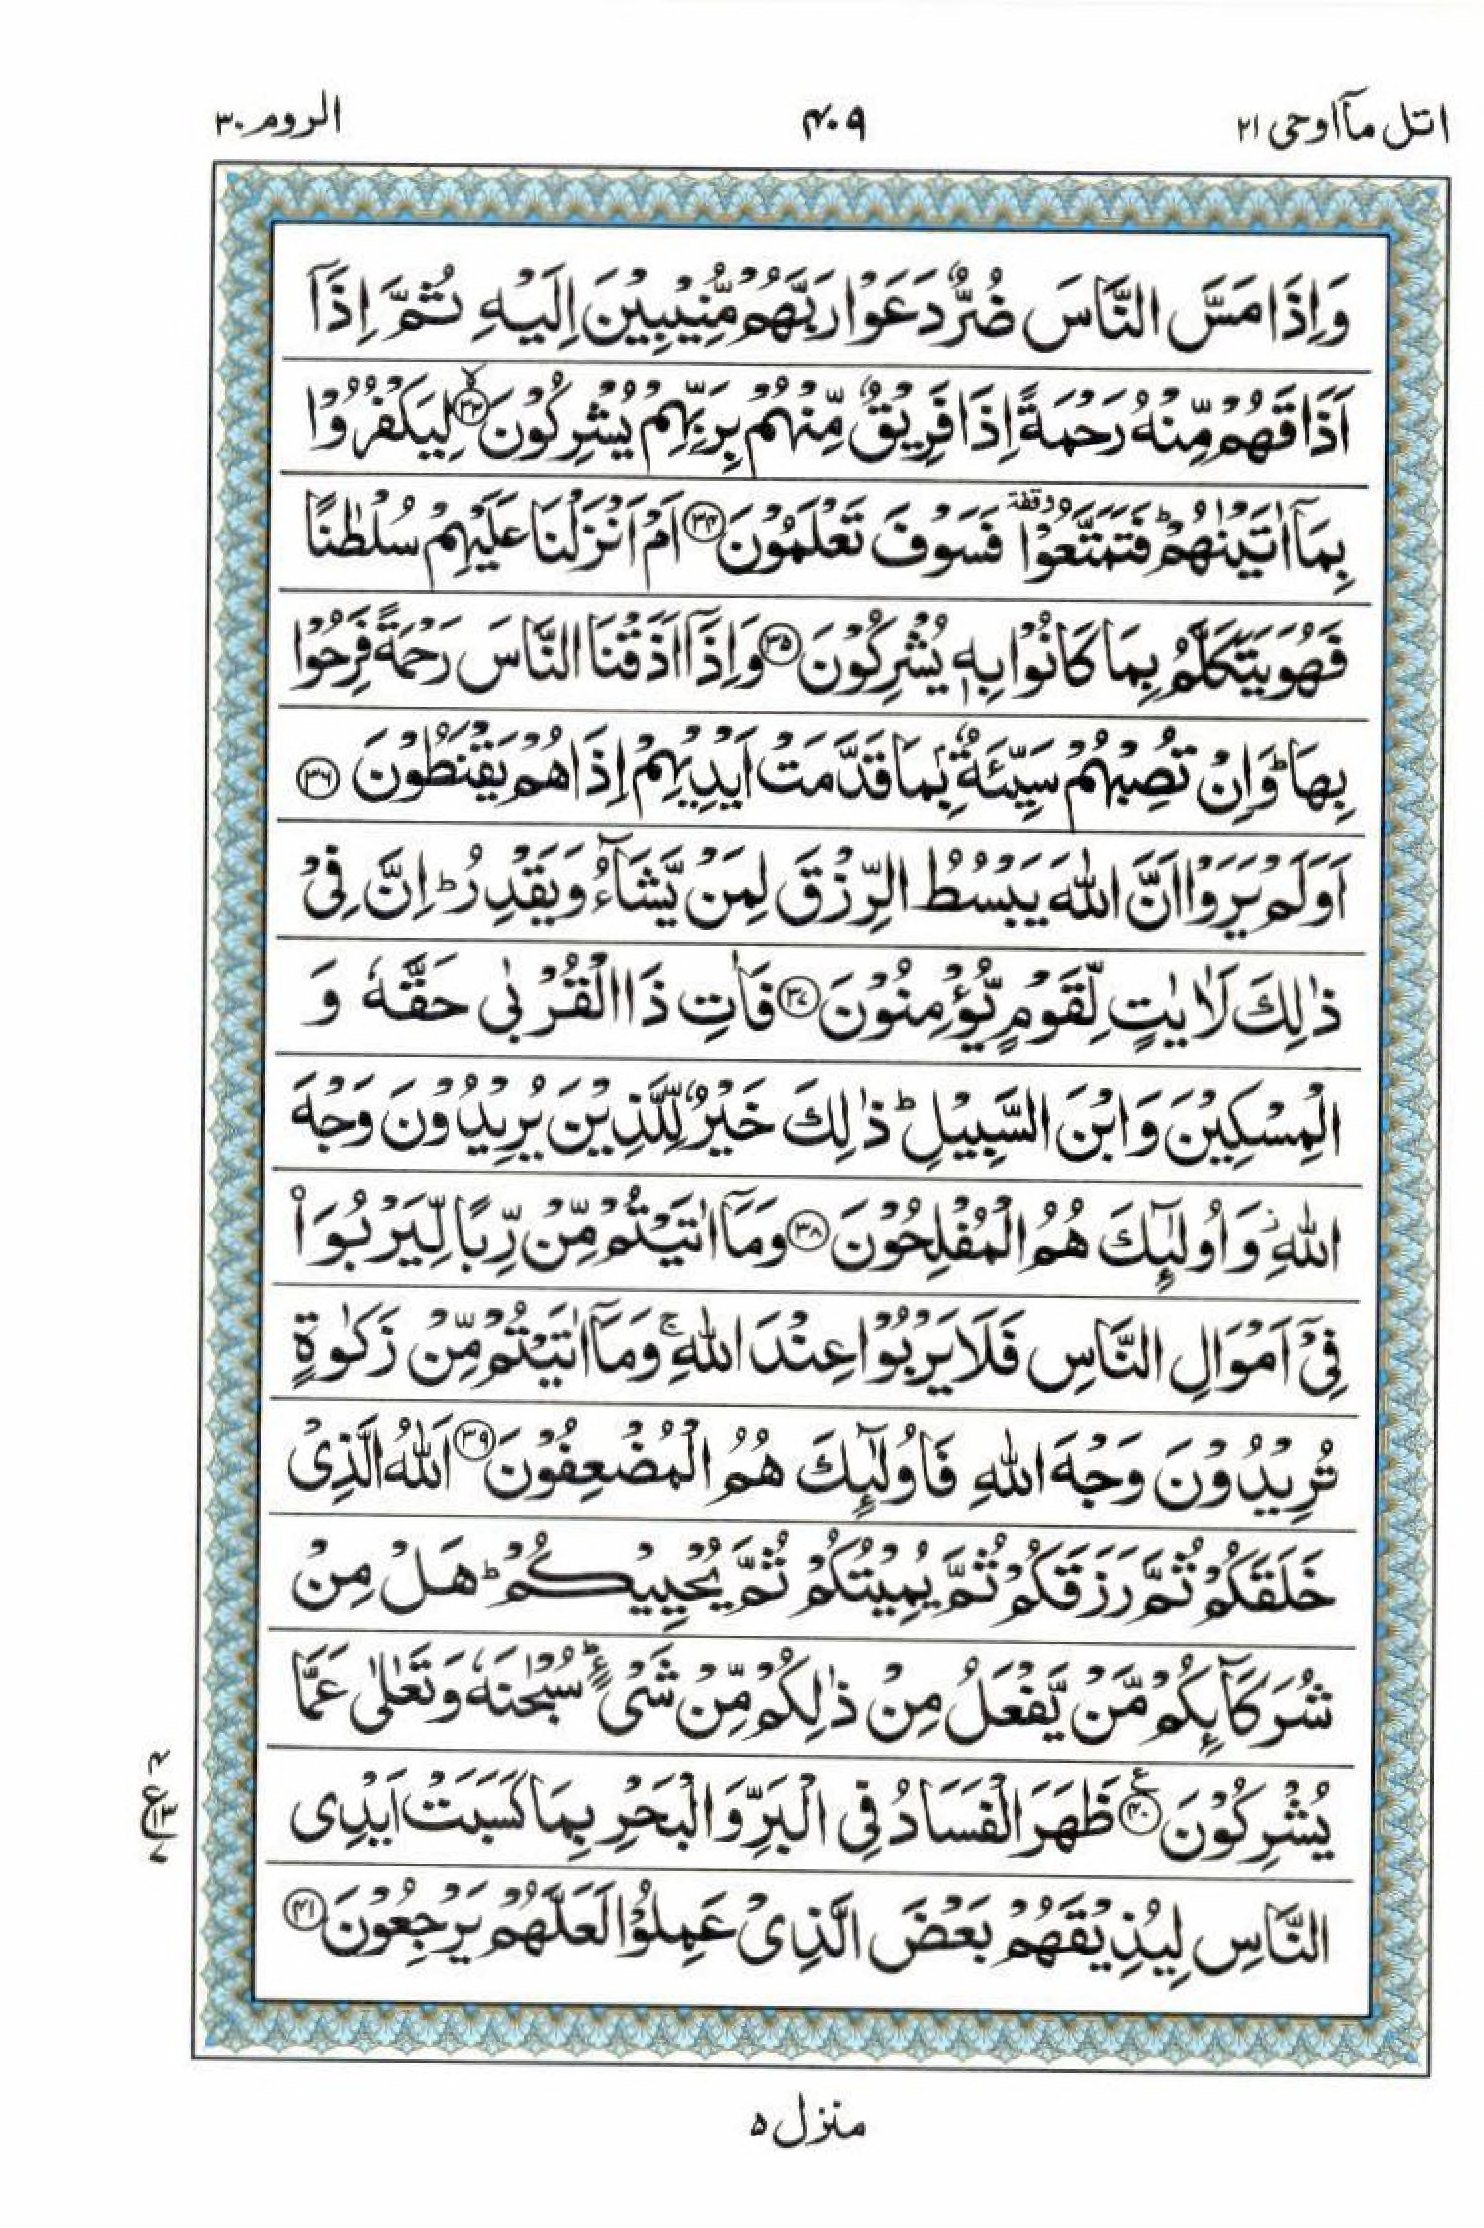 اتل مآ اوحی ۲۱ ۴۰۹ الروم ۳۰
وَاِذَا مَسَّ النَّاسَ ضُرٌّ دَعَوْا رَبَّهُمْ مُّنِيْبِيْنَ اِلَيْهِ ثُمَّ اِذَاۤ
اَذَاقَهُمْ مِّنْهُ رَحْمَةً اِذَا فَرِيْقٌ مِّنْهُمْ بِرَبِّهِمْ يُشْرِكُوْنَ ۙ﴿۳۳﴾ لِيَكْفُرُوْا
بِمَاۤ اٰتَيْنٰهُمْ ؕ فَتَمَتَّعُوْا وقفة فَسَوْفَ تَعْلَمُوْنَ ﴿۳۴﴾ اَمْ اَنْزَلْنَا عَلَيْهِمْ سُلْطٰنًا
فَهُوَ يَتَكَلَّمُ بِمَا كَانُوْا بِهٖ يُشْرِكُوْنَ ﴿۳۵﴾ وَاِذَاۤ اَذَقْنَا النَّاسَ رَحْمَةً فَرِحُوْا
بِهَا ؕ وَاِنْ تُصِبْهُمْ سَيِّئَةٌۢ بِمَا قَدَّمَتْ اَيْدِيْهِمْ اِذَا هُمْ يَقْنَطُوْنَ ﴿۳۶﴾
اَوَلَمْ يَرَوْا اَنَّ اللّٰهَ يَبْسُطُ الرِّزْقَ لِمَنْ يَّشَآءُ وَيَقْدِرُ ؕ اِنَّ فِيْ
ذٰلِكَ لَاٰيٰتٍ لِّقَوْمٍ يُّؤْمِنُوْنَ ﴿۳۷﴾ فَاٰتِ ذَا الْقُرْبٰى حَقَّهٗ وَ
الْمِسْكِيْنَ وَابْنَ السَّبِيْلِ ؕ ذٰلِكَ خَيْرٌ لِّلَّذِيْنَ يُرِيْدُوْنَ وَجْهَ
اللّٰهِ ؗ وَاُولٰٓئِكَ هُمُ الْمُفْلِحُوْنَ ﴿۳۸﴾ وَمَاۤ اٰتَيْتُمْ مِّنْ رِّبًا لِّيَرْبُوَا۟
فِيْۤ اَمْوَالِ النَّاسِ فَلَا يَرْبُوْا عِنْدَ اللّٰهِ ۚ وَمَاۤ اٰتَيْتُمْ مِّنْ زَكٰوةٍ
تُرِيْدُوْنَ وَجْهَ اللّٰهِ فَاُولٰٓئِكَ هُمُ الْمُضْعِفُوْنَ ﴿۳۹﴾ اَللّٰهُ الَّذِيْ
خَلَقَكُمْ ثُمَّ رَزَقَكُمْ ثُمَّ يُمِيْتُكُمْ ثُمَّ يُحْيِيْكُمْ ؕ هَلْ مِنْ
شُرَكَآئِكُمْ مَّنْ يَّفْعَلُ مِنْ ذٰلِكُمْ مِّنْ شَيْءٍ ؕ سُبْحٰنَهٗ وَتَعٰلٰى عَمَّا
يُشْرِكُوْنَ ﴿۴۰﴾ ع ظَهَرَ الْفَسَادُ فِي الْبَرِّ وَالْبَحْرِ بِمَا كَسَبَتْ اَيْدِي
۴ ع ۱۳ ۷
النَّاسِ لِيُذِيْقَهُمْ بَعْضَ الَّذِيْ عَمِلُوْا لَعَلَّهُمْ يَرْجِعُوْنَ ﴿۴۱﴾
منزل ۵